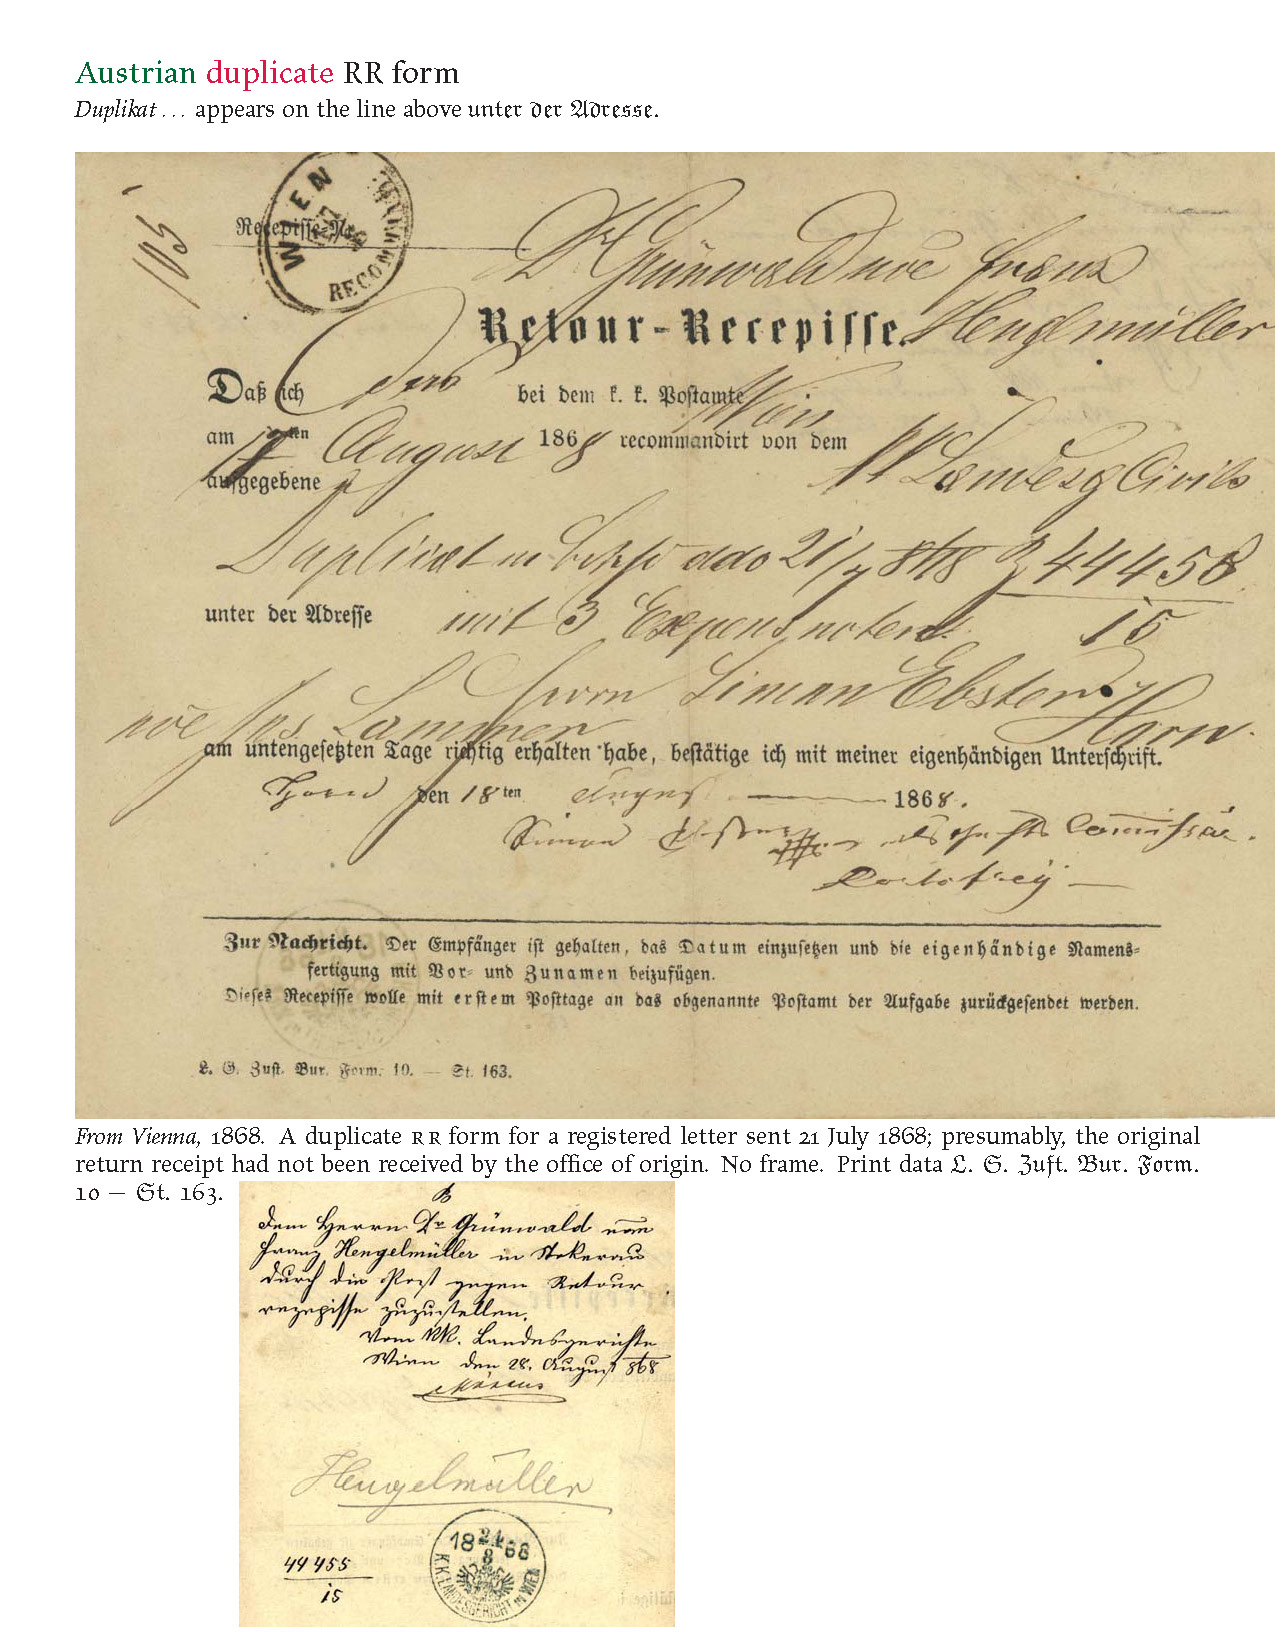 Austrian duplicate RR form
Duplikat ... appears on the line above unter der Adresse.
105
WIEN
RECOMMANDIRT
Recepisse-Nr.
Dr Grünwald noe Franz
Retour-Recepisse Hengelmüller
Daß ich das bei dem k. k. Postamte Wien
am 17ten August 1868 recommandirt von dem kk Landesg Civils
aufgegebene
Duplicat ddo 21/7 868 Z 44458
unter der Adresse mit 3 Expensnoten 15
Herrn Simon Ebster
noe Jos. Lammer Horn
am untengesetzten Tage richtig erhalten habe, bestätige ich mit meiner eigenhändigen Unterschrift.
Horn den 18ten August 1868.
Simon Commissär.
Zur Nachricht. Der Empfänger ist gehalten, das Datum einzusetzen und die eigenhändige Namens=
fertigung mit Vor= und Zunamen beizufügen.
Dieses Recepisse wolle mit erstem Posttage an das obgenannte Postamt der Aufgabe zurückgesendet werden.
L. G. Zust. Bur. Form. 10. — St. 163.
From Vienna, 1868. A duplicate RR form for a registered letter sent 21 July 1868; presumably, the original
return receipt had not been received by the office of origin. No frame. Print data L. G. Zust. Bur. Form.
10 — St. 163.
Dem Herrn Dr Grünwald nom
Franz Hengelmüller in Stokerau
durch die Post gegen Retour
rezepisse zuzustellen.
Vom kk. Landesgerichte
Wien den 28. August 868
Hengelmüller
44455
15
18 24 68
8
K.K. LANDESGERICHT IN WIEN